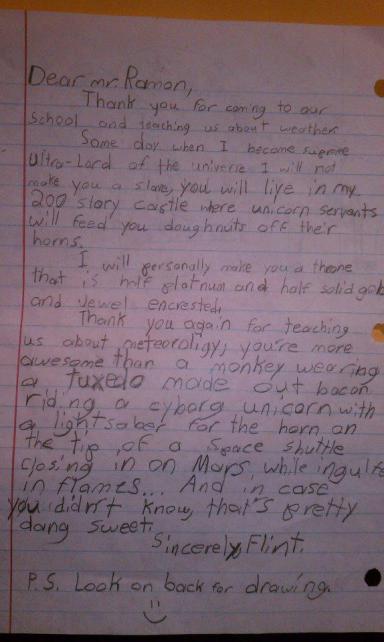 Dear mr. Ramon,
Thank you for coming to our
school and teaching us about weather.
Some day when I become supreme
Ultra-Lord of the universe I will not
make you a slave, you will live in my
200 story castle where unicorn servants
will feed you doughnuts off their
horns.
I will personally make you a throne
that is half platnum and half solid gold
and jewel encrested.
Thank you again for teaching
us about meteoroligy; you're more
awesome than a monkey wearing
a tuxedo made out bacon
riding a cyborg unicorn with
a lightsaber for the horn on
the tip of a space shuttle
closing in on Mars while ingulfed
in flames... And in case
you didn't know, that's pretty
dang sweet.
Sincerely, Flint.
P.S. Look on back for drawing.